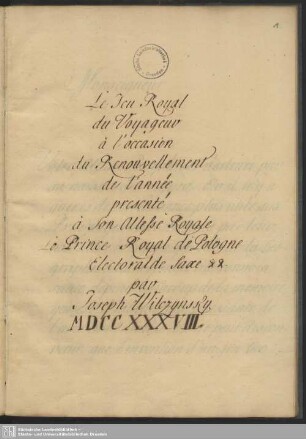 Le Jeu Royal
du Voyageur
à l'occasion
du Renouvellement
de l'année
presenté
à Son Altesse Royale
Le Prince Royal de Pologne
Electoral de Saxe &&
par
Joseph Wilczynsky
MDCCXXXVIII.